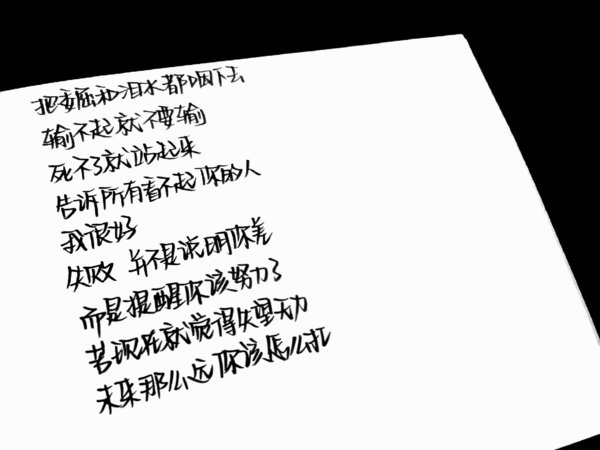 把委屈和泪水都咽下去
输不起就不要输
死不了就站起来
告诉所有看不起你的人
我很好
失败 并不是说明你差
而是提醒你该努力了
若现在就觉得失望无力
未来那么远你该怎么扛